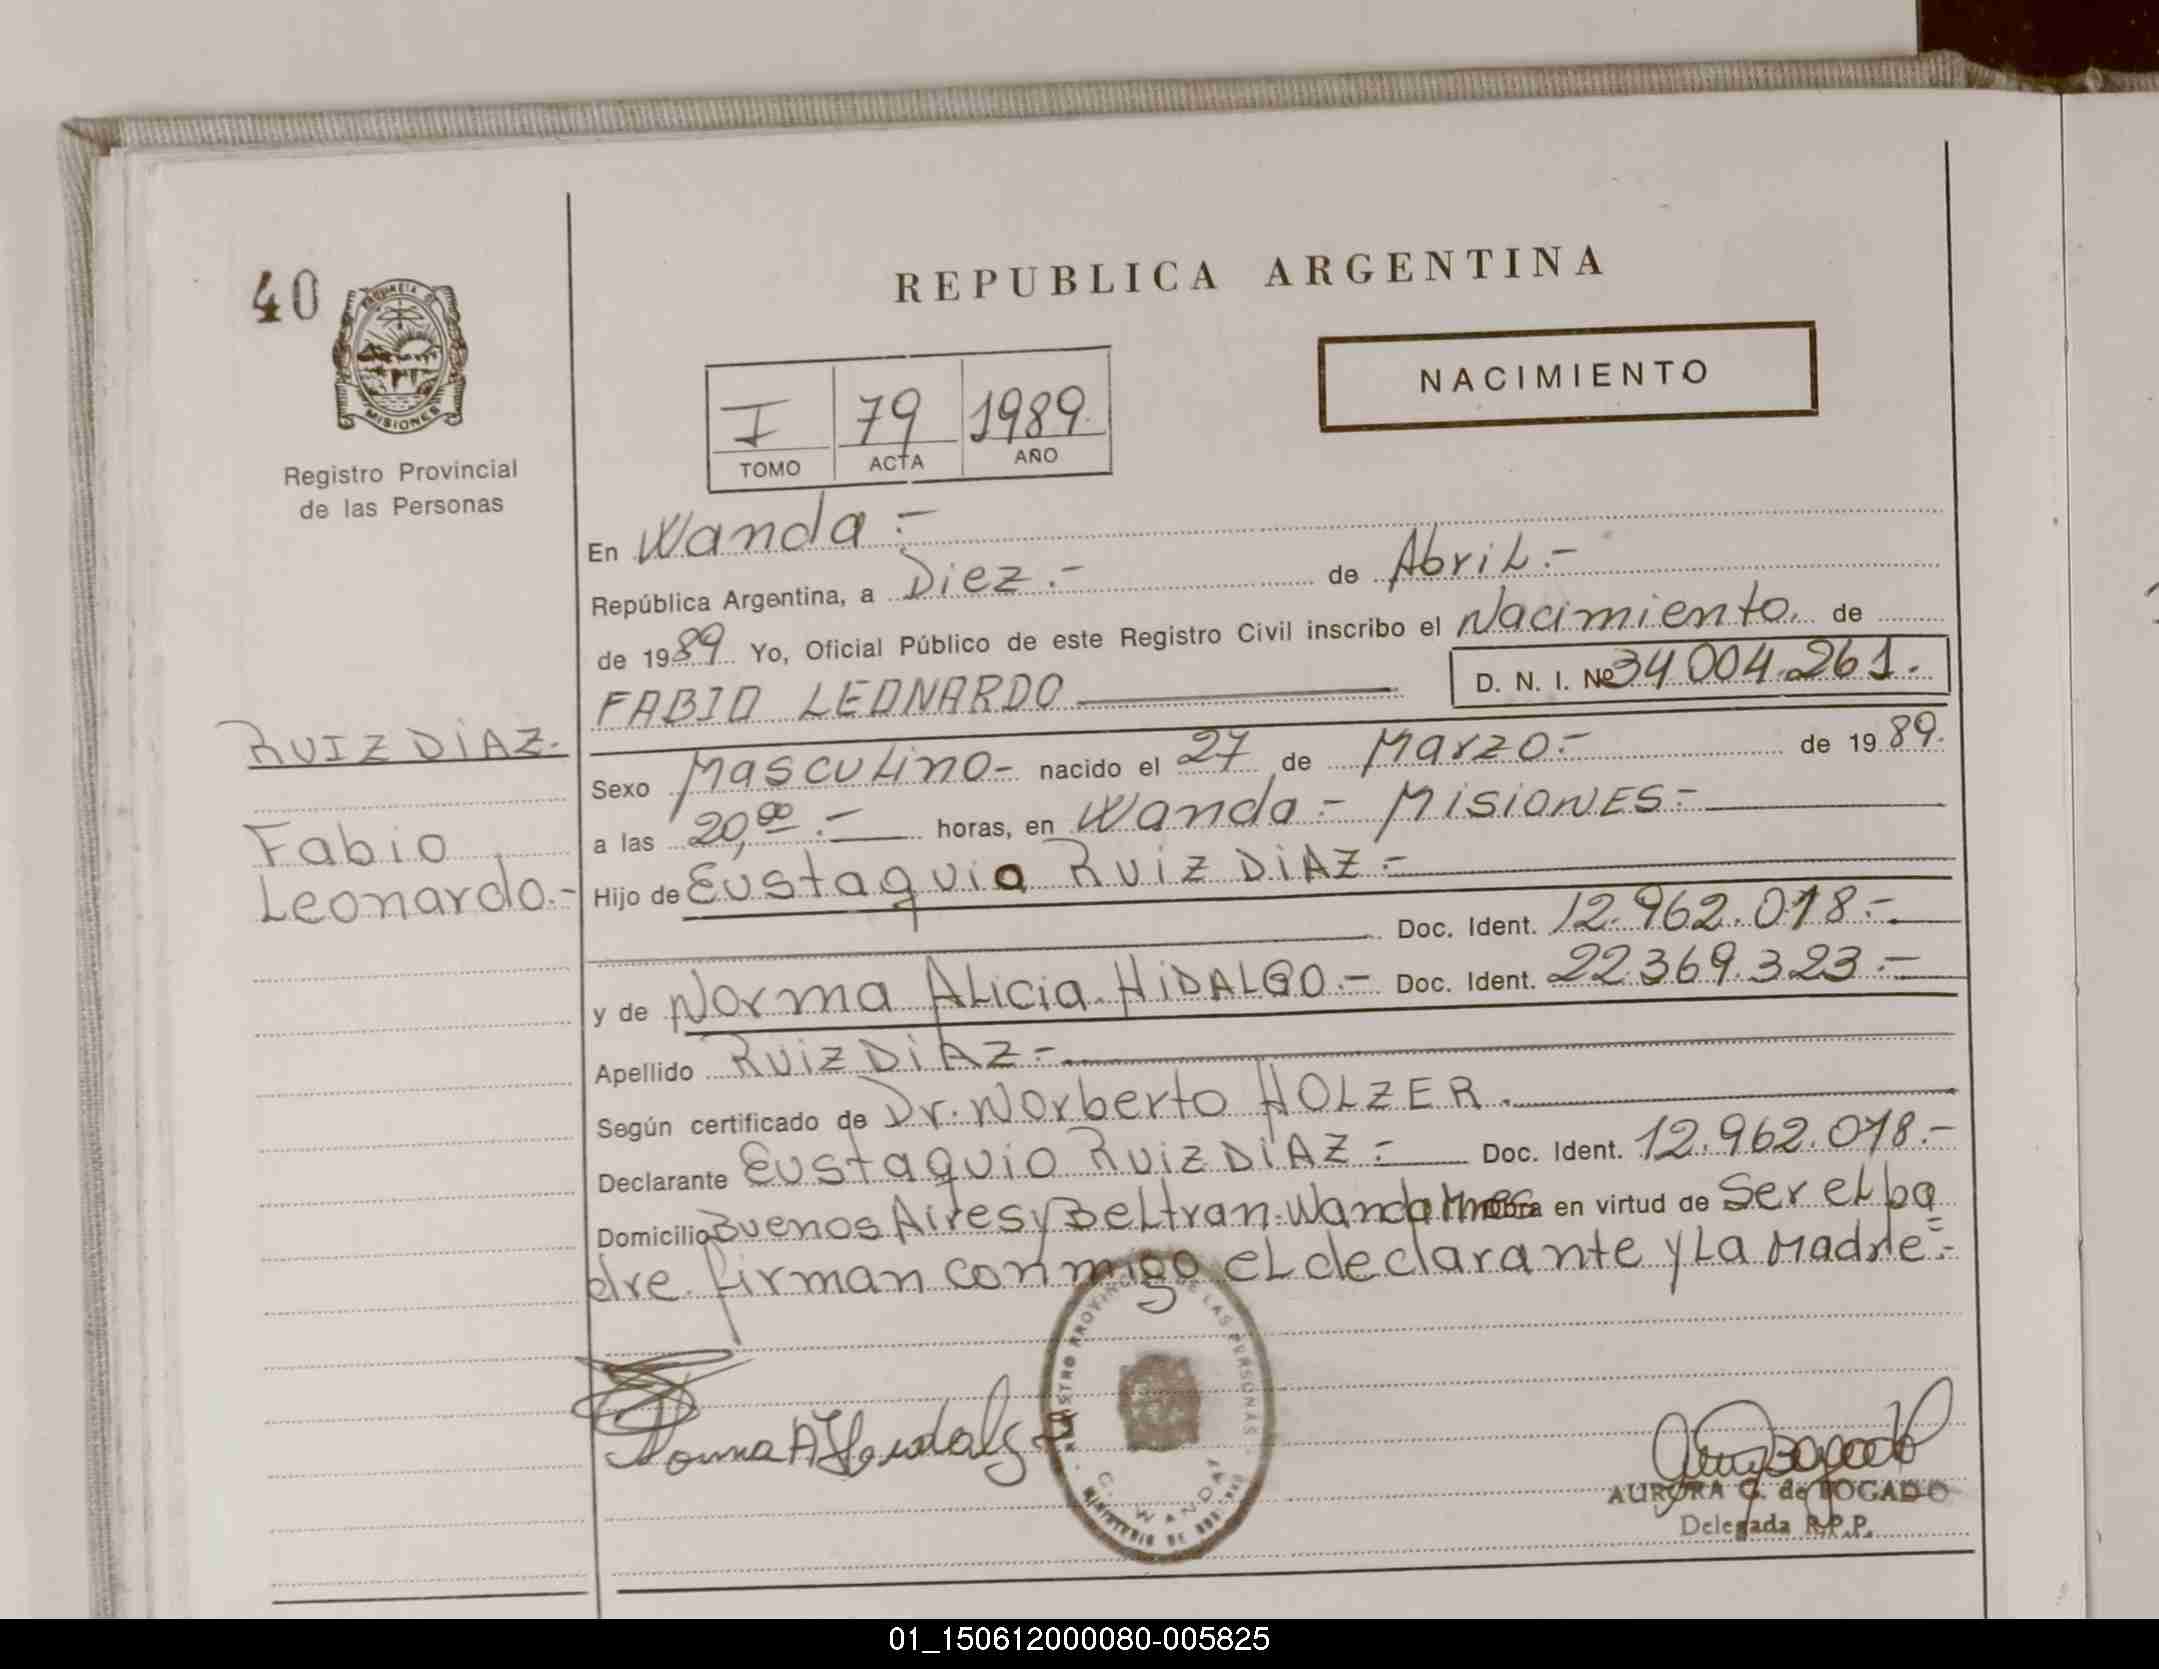 40
PROVINCIA DE
MISIONES
Registro Provincial
de las Personas
REPUBLICA ARGENTINA
NACIMIENTO
I 79 1989
TOMO ACTA AÑO
En Wanda.-
República Argentina, a Diez.- de Abril.-
de 1989 Yo, Oficial Público de este Registro Civil inscribo el Nacimiento de
FABIO LEONARDO D. N. I. Nº 34 004.261.
RUIZ DIAZ.-
Sexo Masculino- nacido el 27 de Marzo.- de 1989.
a las 20,00.- horas, en Wanda.- MISIONES.-
Fabio
Leonardo.-
Hijo de Eustaquio RUIZ DIAZ.-
Doc. Ident. 12.962.018.-
y de Norma Alicia HIDALGO.- Doc. Ident. 22.369.323.-
Apellido RUIZ DIAZ.-
Según certificado de Dr. Norberto HOLZER.
Declarante Eustaquio RUIZ DIAZ.- Doc. Ident. 12.962.018.-
Domicilio Buenos Aires y Beltran-Wanda Mnes en virtud de Ser el pa
dre. firman conmigo el declarante y la Madre.-
REGISTRO PROVINCIAL DE LAS PERSONAS
WANDA
MINISTERIO DE
Norma A Hidalgo
AURORA G. de BOGADO
Delegada R.P.P.
01_150612000080-005825